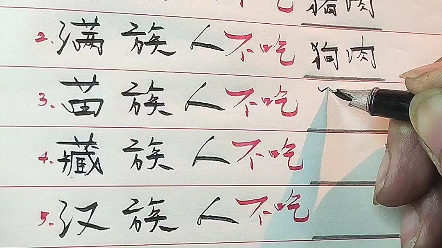 不吃猪肉
2.满族人不吃狗肉
3.苗族人不吃
4.藏族人不吃
5.汉族人不吃